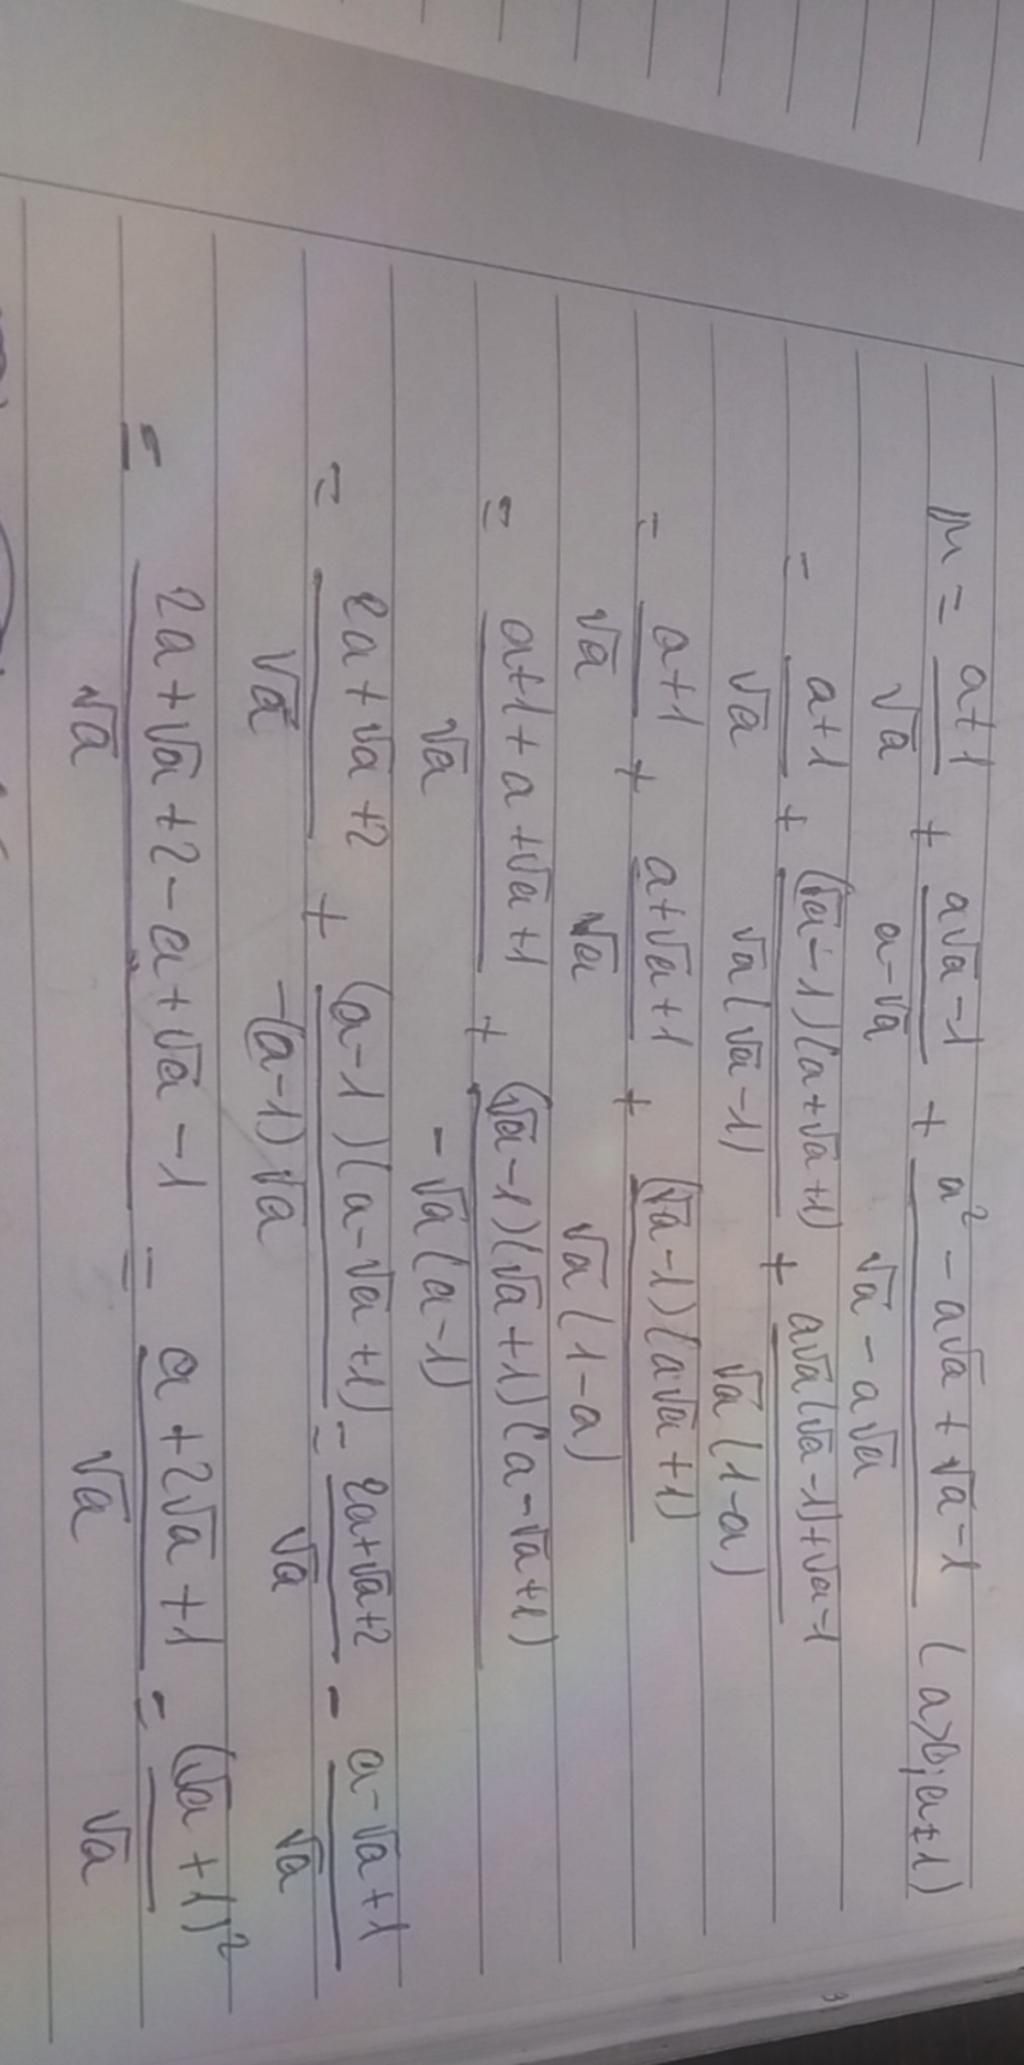 M = \frac{a+1}{√a} + \frac{a√a-1}{a-√a} + \frac{a²-a√a+√a-1}{√a-a√a} (a>0; a≠1)
= \frac{a+1}{√a} + \frac{(√a-1)(a+√a+1)}{√a(√a-1)} + \frac{a√a(√a-1)+√a-1}{√a(1-a)}
= \frac{a+1}{√a} + \frac{a+√a+1}{√a} + \frac{(√a-1)(a√a+1)}{√a(1-a)}
= \frac{a+1+a+√a+1}{√a} + \frac{(√a-1)(√a+1)(a-√a+1)}{-√a(a-1)}
= \frac{2a+√a+2}{√a} + \frac{(a-1)(a-√a+1)}{-(a-1)√a} = \frac{2a+√a+2}{√a} - \frac{a-√a+1}{√a}
= \frac{2a+√a+2-a+√a-1}{√a} = \frac{a+2√a+1}{√a} = \frac{(√a+1)²}{√a}